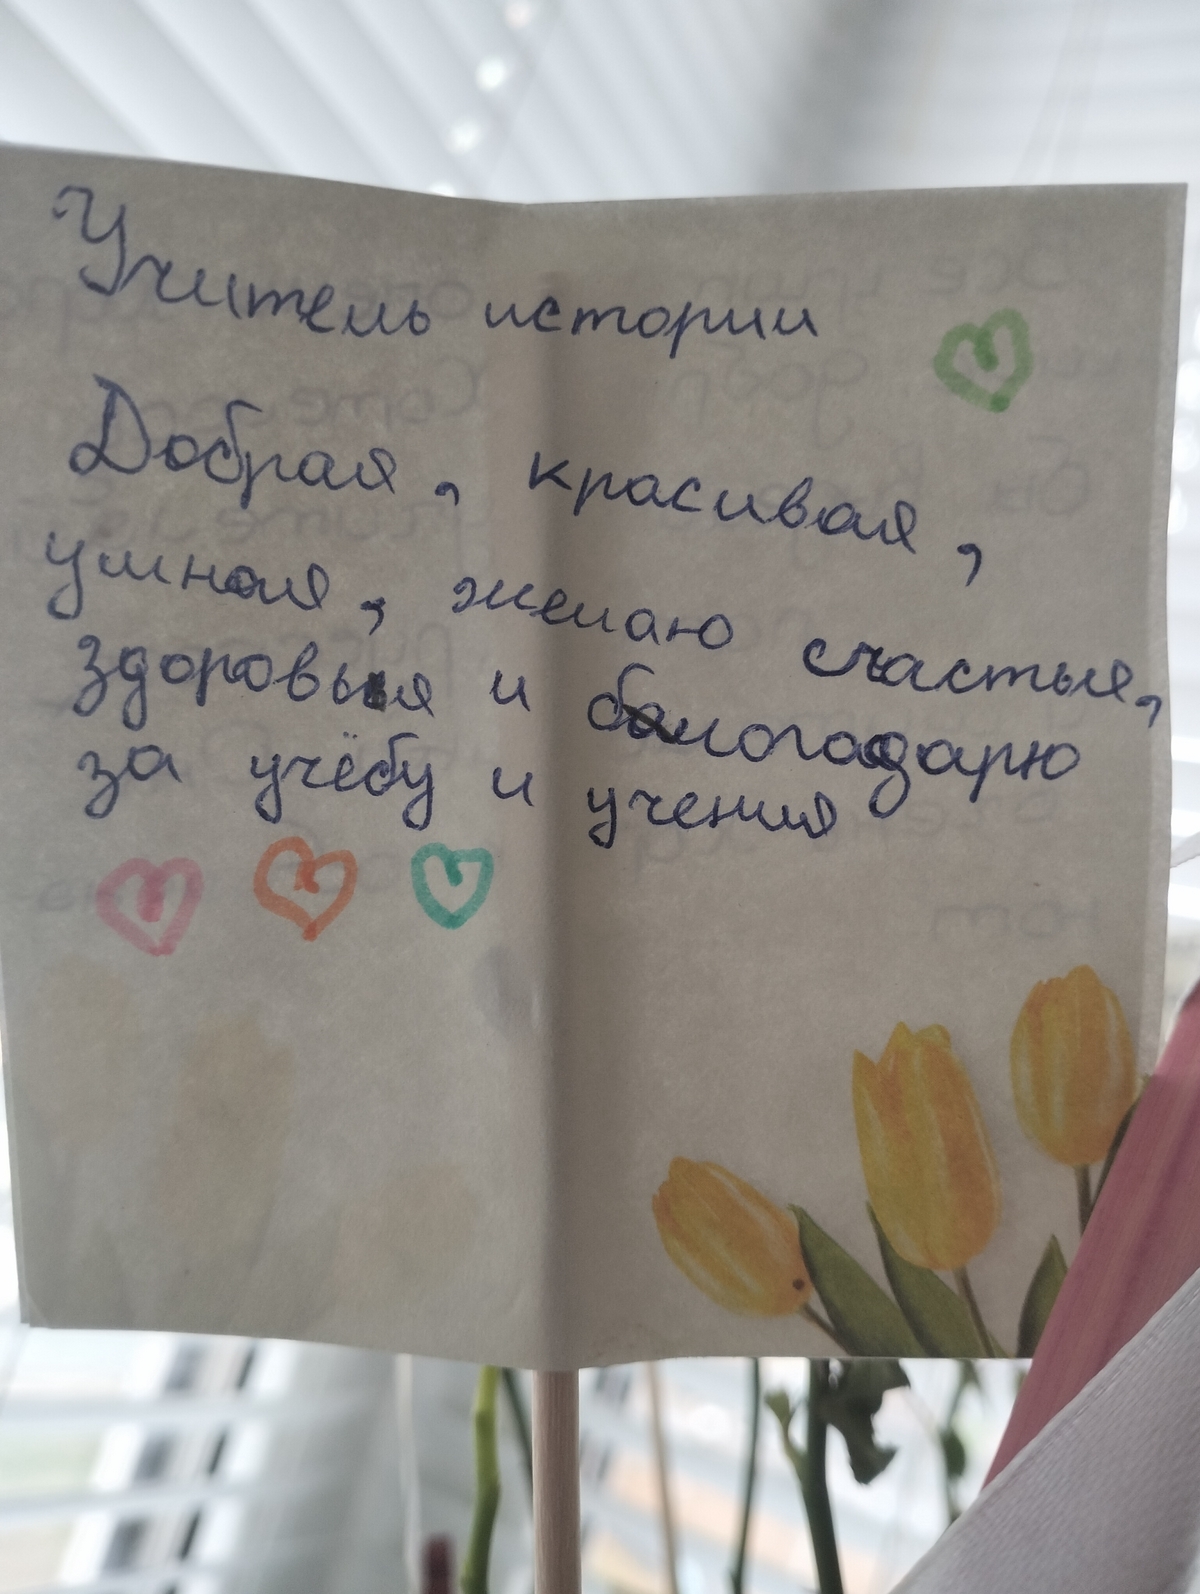 Учитель истории
Добрая, красивая,
умная, желаю счастья,
здоровья и балогадарю
за учёбу и учения